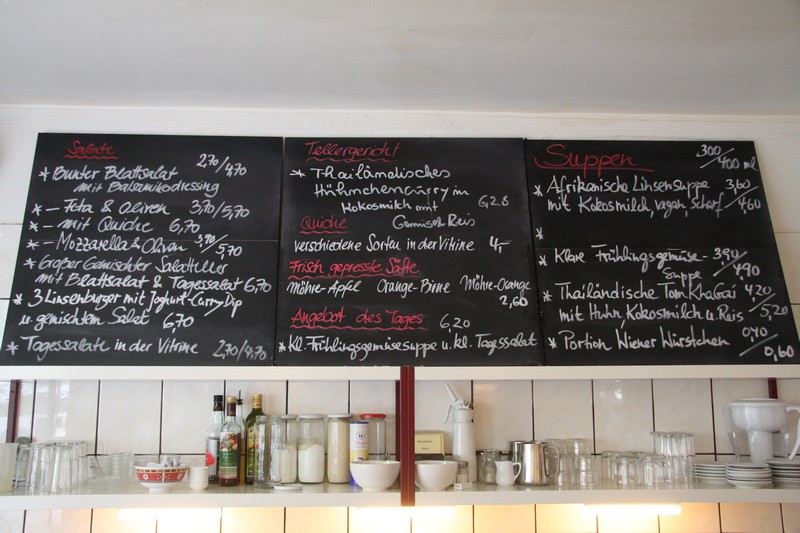 Salate
2,70/4,70
* Bunter Blattsalat
mit Balsamikodressing
* — Feta & Oliven 3,70/5,70
* — mit Quiche 6,70
* — Mozzarella & Oliven 3,70/5,70
* Großer Gemischter Salatteller
mit Blattsalat & Tagessalat 6,70
* 3 Linsenburger mit Joghurt-Curry Dip
u. gemischtem Salat 6,70
* Tagessalate in der Vitrine 2,70/4,70
Tellergericht
* Thailändisches
Hühnchencurry in
Kokosmilch mit
Gemüse & Reis
Quiche
verschiedene Sorten in der Vitrine 4,-
Frisch gepresste Säfte
Möhre-Apfel Orange-Birne Möhre-Orange
2,60
Angebot des Tages 6,20
* Kl. Frühlingsgemüsesuppe u. kl. Tagessalat
Suppen 300/400 ml
* Afrikanische Linsensuppe 3,60/4,60
mit Kokosmilch, vegan, scharf
*
* Klare Frühlingsgemüse- 3,90/4,90
Suppe
* Thailändische Tom Kha Gai 4,20/5,20
mit Huhn, Kokosmilch u. Reis
* Portion Wiener Würstchen 0,40/0,60